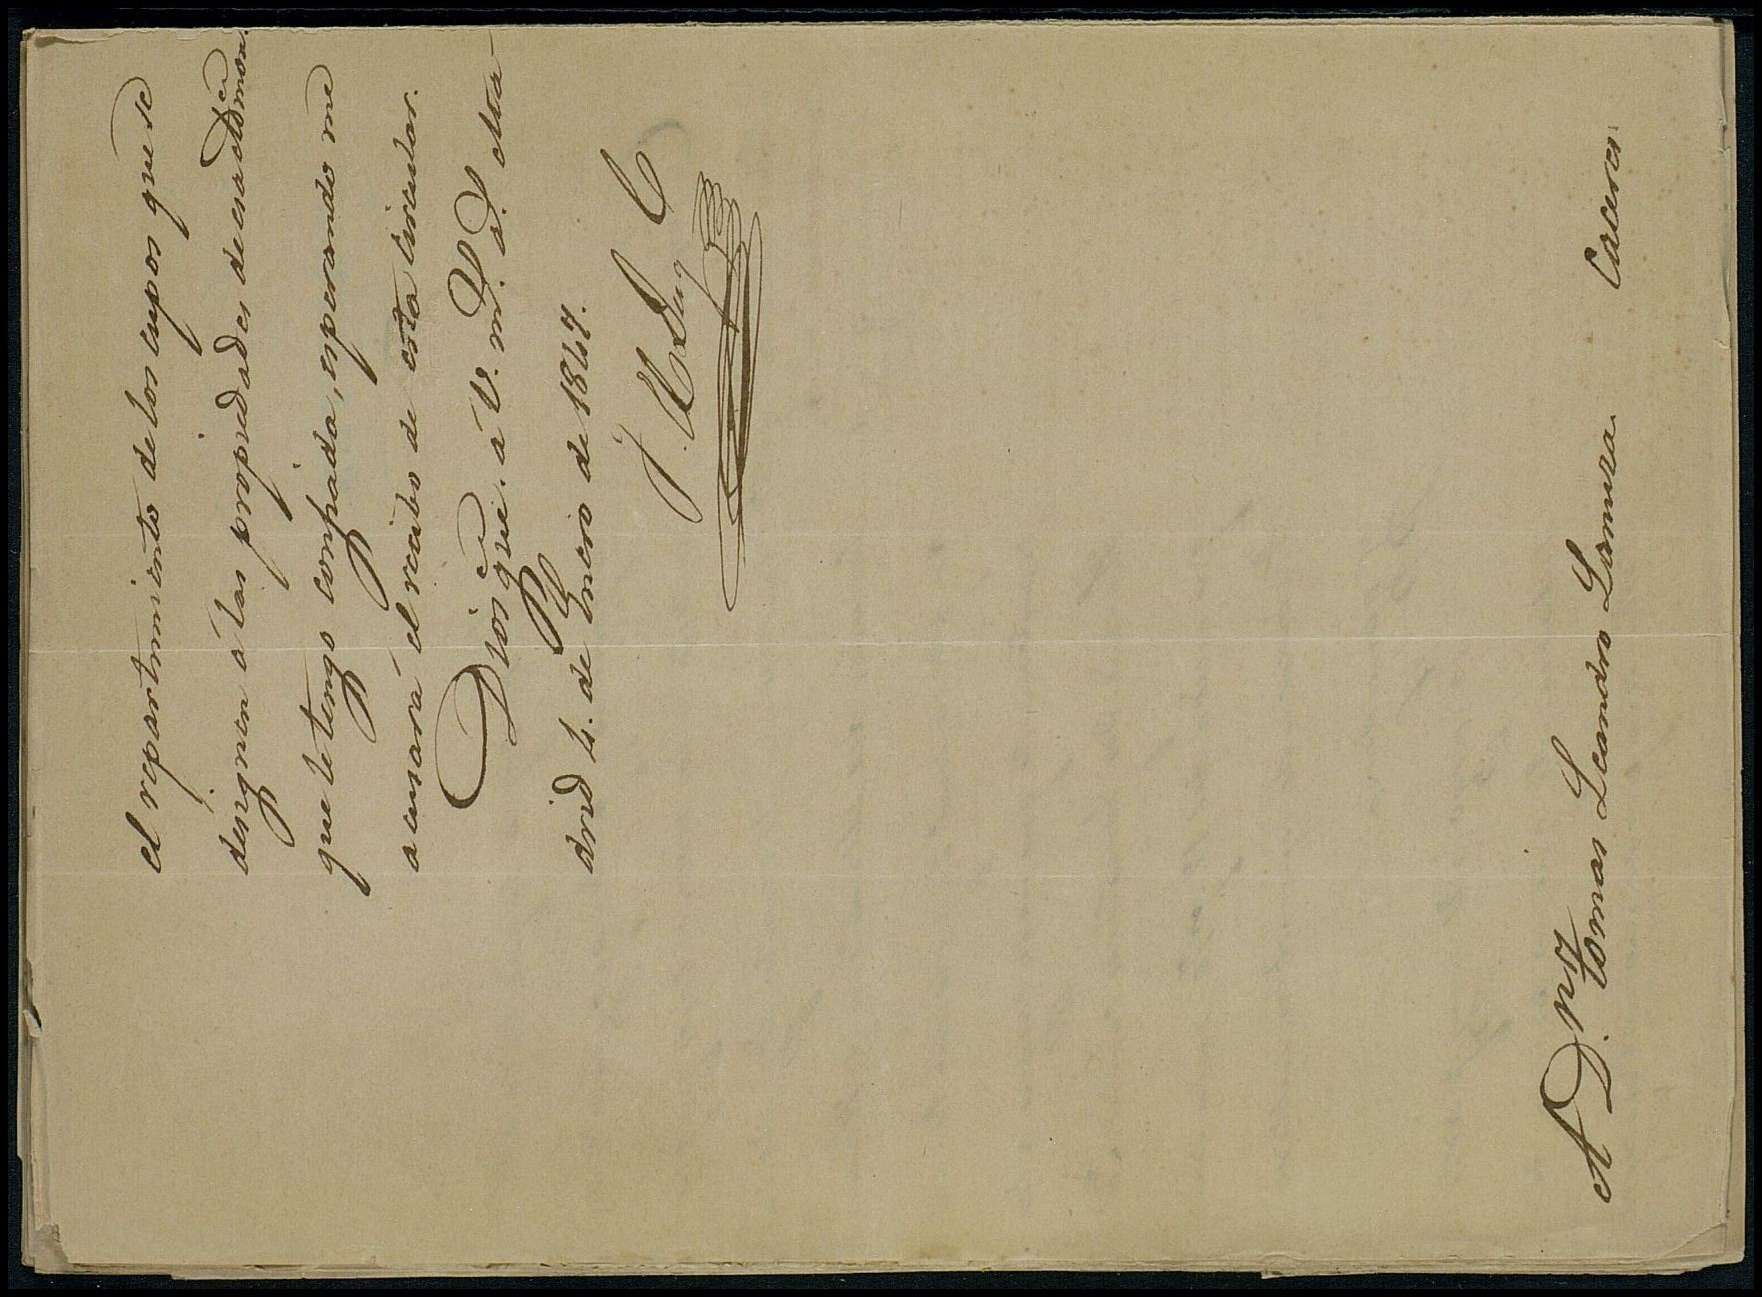 el repartimiento de los cupos que se
designen á las propiedades de esa admon.
que le tengo confiada, esperando me
acusará el recibo de esta circular.
Dios gue. á V. m.s a.s
drid 4. de Enero de 1867.
A D.n Tomas Leandro Lamuza. Caceres